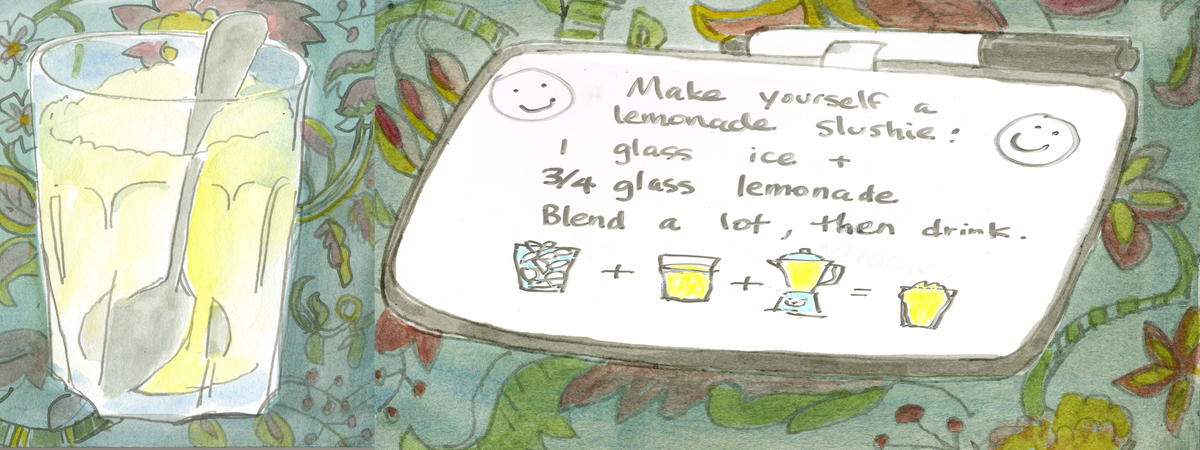 Make yourself a
lemonade slushie:
1 glass ice +
3/4 glass lemonade
Blend a lot, then drink.
+ + =